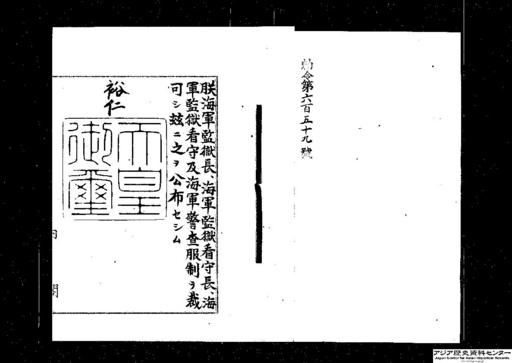 勅令第六百五十九號
朕海軍監獄長、海軍監獄看守長、海
軍監獄看守及海軍警査服制ヲ裁
可シ玆ニ之ヲ公布セシム
裕仁
天皇
御璽
内
閣
アジア歴史資料センター
Japan Center for Asian Historical Records